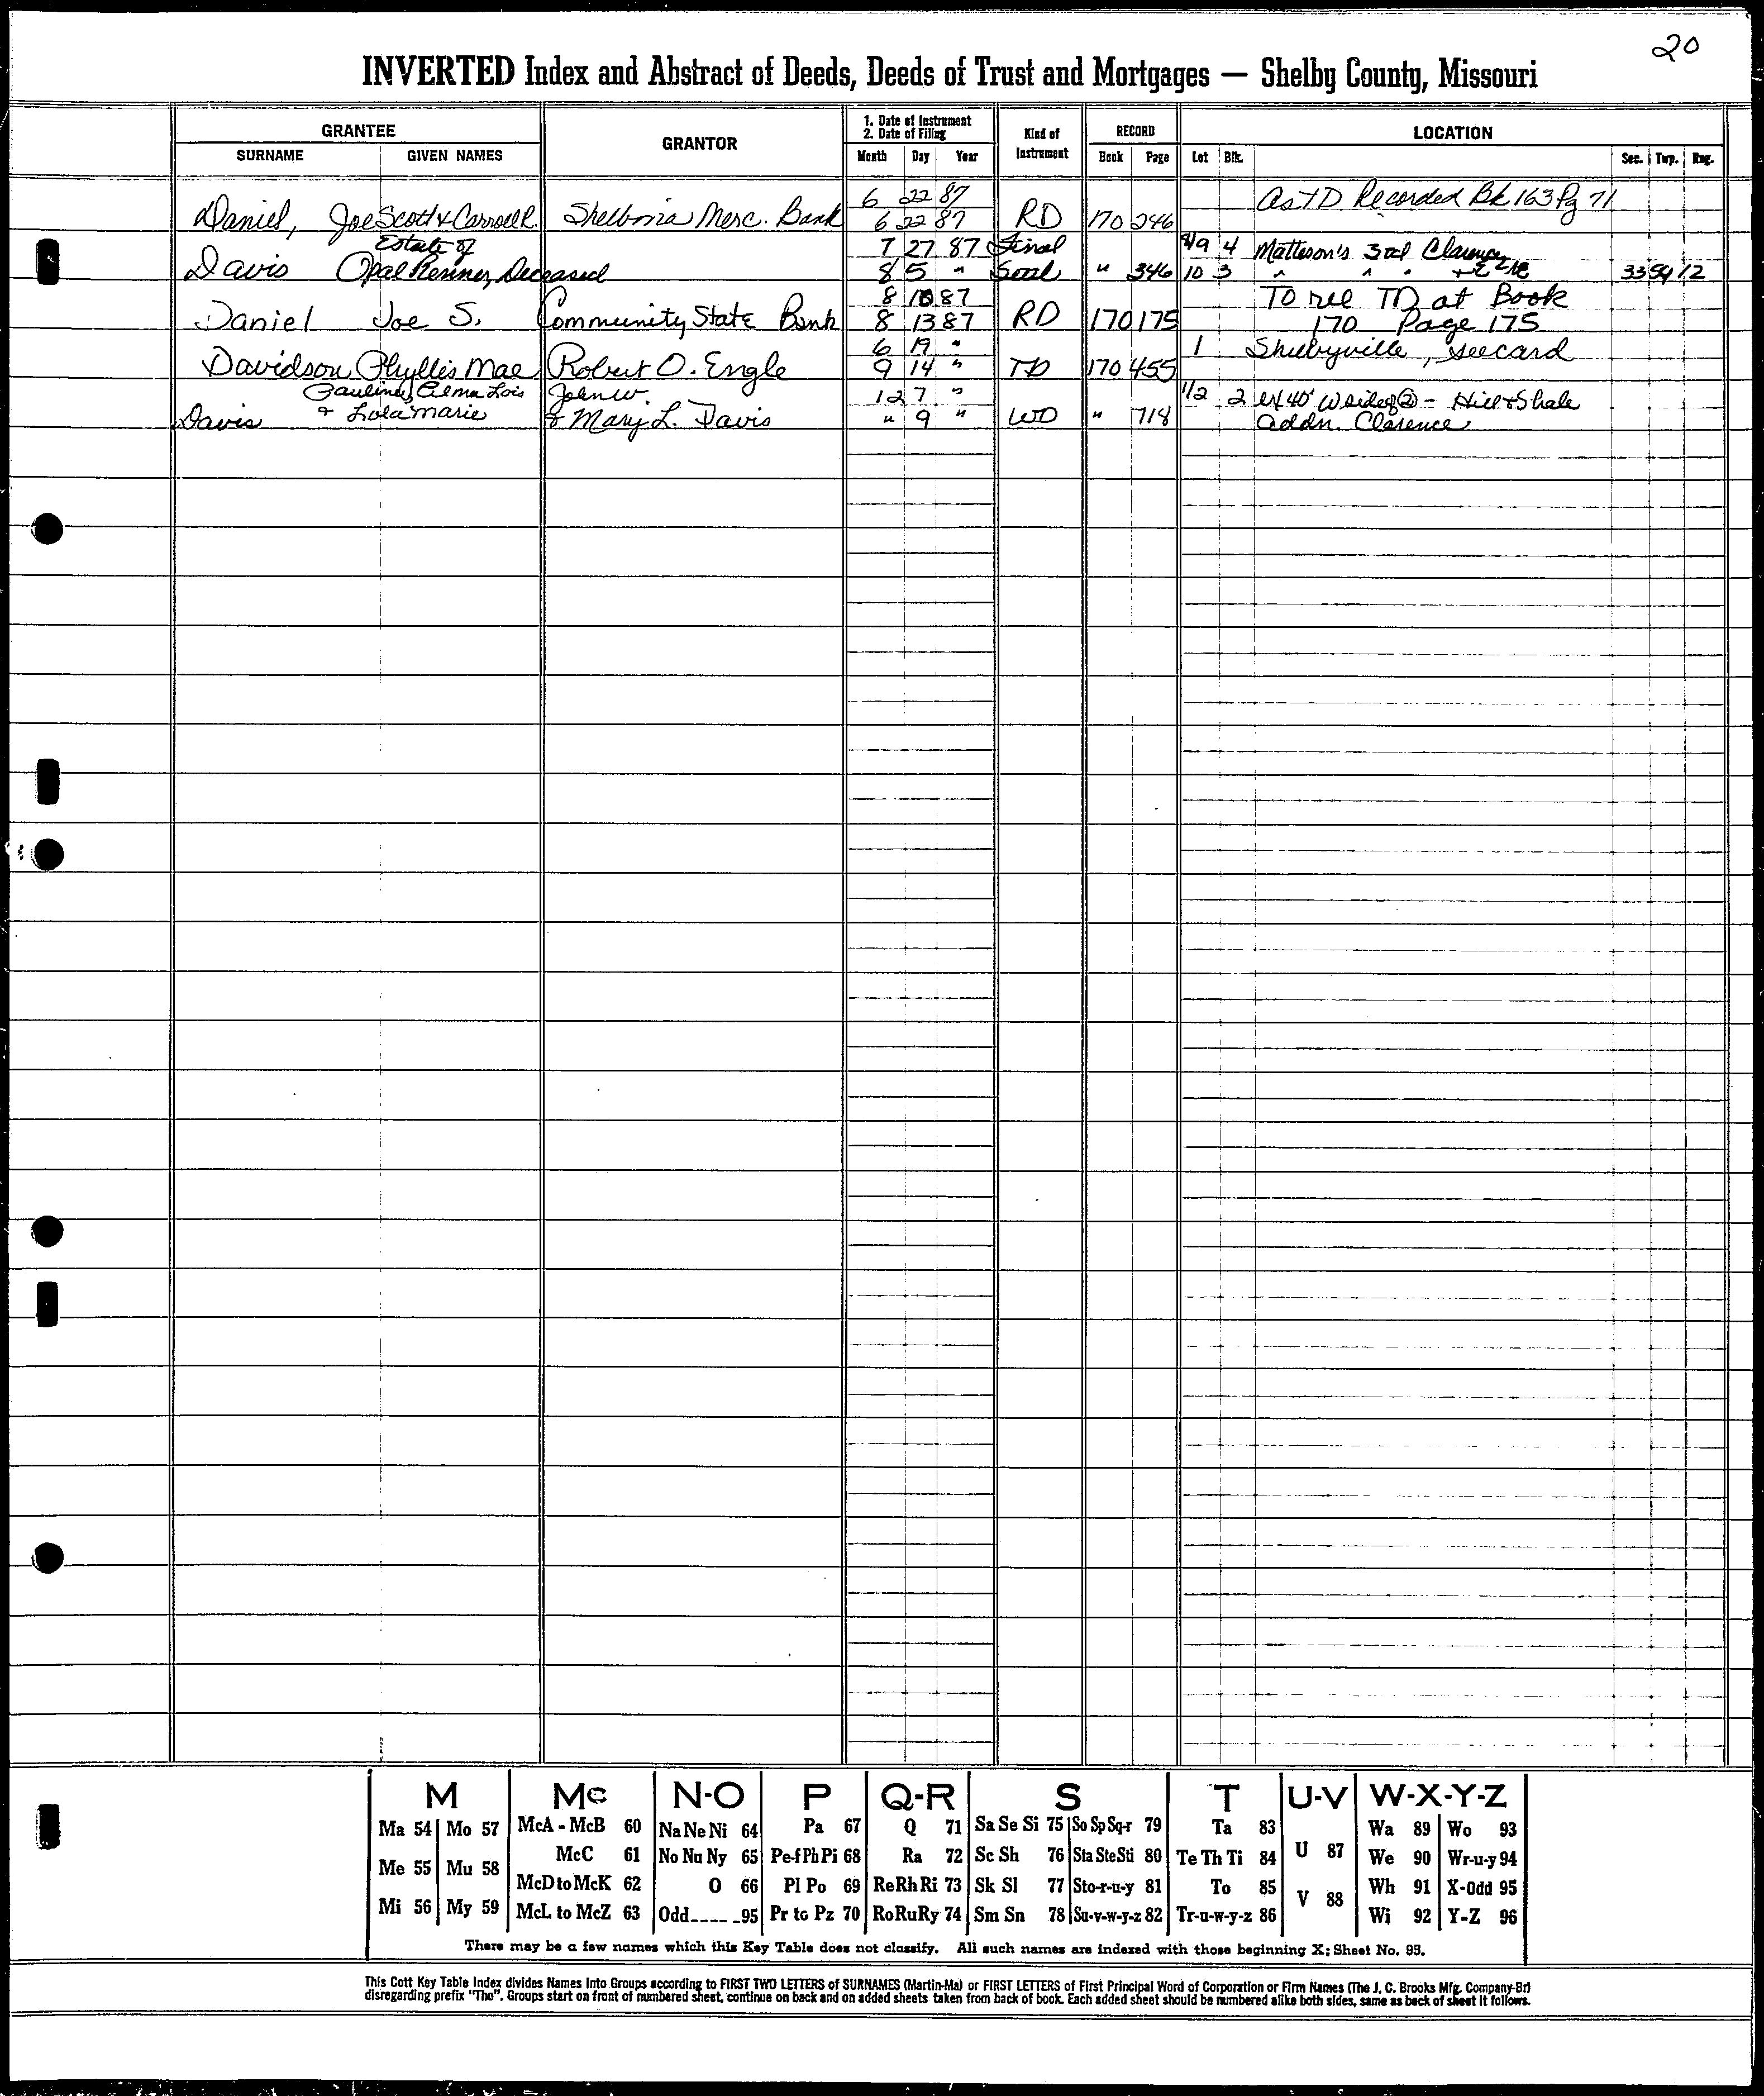 20
INVERTED Index and Abstract of Deeds, Deeds of Trust and Mortgages — Shelby County, Missouri
GRANTEE GRANTOR 1. Date of Instrument 2. Date of Filing Kind of Instrument RECORD LOCATION
SURNAME GIVEN NAMES Month Day Year Book Page Lot Blk. Sec. Twp. Rng.
6 22 87 As TD Recorded Bk 163 Pg 71
Daniel, Joe Scott & Carroll R. Shelbina Merc. Bank 6 22 87 RD 170 246
Estate of 7 27 87 Final 8/9 4 Matteson's 3rd Clarence
Davis Opal Renner, Deceased 8 5 " " 346 10 3 " " " 33 59 12
8 10 87 To rel TD at Book
Daniel Joe S. Community State Bank 8 13 87 RD 170 175 170 Page 175
6 19 " 1 Shelbyville, see card
Davidson Phyllis Mae Robert O. Engle 9 14 " TD 170 455
Pauline, Alma Lois John W. 12 7 " 1/2 2 ex 40' W side of 2 - Hill & Shale
Davis & Lola Marie & Mary L. Davis " 9 " WD " 718 Addn. Clarence
M Mc N-O P Q-R S T U-V W-X-Y-Z
Ma 54 Mo 57 McA - McB 60 Na Ne Ni 64 Pa 67 Q 71 Sa Se Si 75 So Sp Sq-r 79 Ta 83 Wa 89 Wo 93
Me 55 Mu 58 McC 61 No Nu Ny 65 Pe-f Ph Pi 68 Ra 72 Sc Sh 76 Sta Ste Sti 80 Te Th Ti 84 U 87 We 90 Wr-u-y 94
McD to McK 62 O 66 Pl Po 69 Re Rh Ri 73 Sk Sl 77 Sto-r-u-y 81 To 85 Wh 91 X-Odd 95
Mi 56 My 59 McL to McZ 63 Odd_____95 Pr to Pz 70 Ro Ru Ry 74 Sm Sn 78 Su-v-w-y-z 82 Tr-u-w-y-z 86 V 88 Wi 92 Y-Z 96
There may be a few names which this Key Table does not classify. All such names are indexed with those beginning X; Sheet No. 95.
This Cott Key Table Index divides Names Into Groups according to FIRST TWO LETTERS of SURNAMES (Martin-Ma) or FIRST LETTERS of First Principal Word of Corporation or Firm Names (The J. C. Brooks Mfg. Company-Br)
disregarding prefix "The". Groups start on front of numbered sheet, continue on back and on added sheets taken from back of book. Each added sheet should be numbered alike both sides, same as back of sheet it follows.